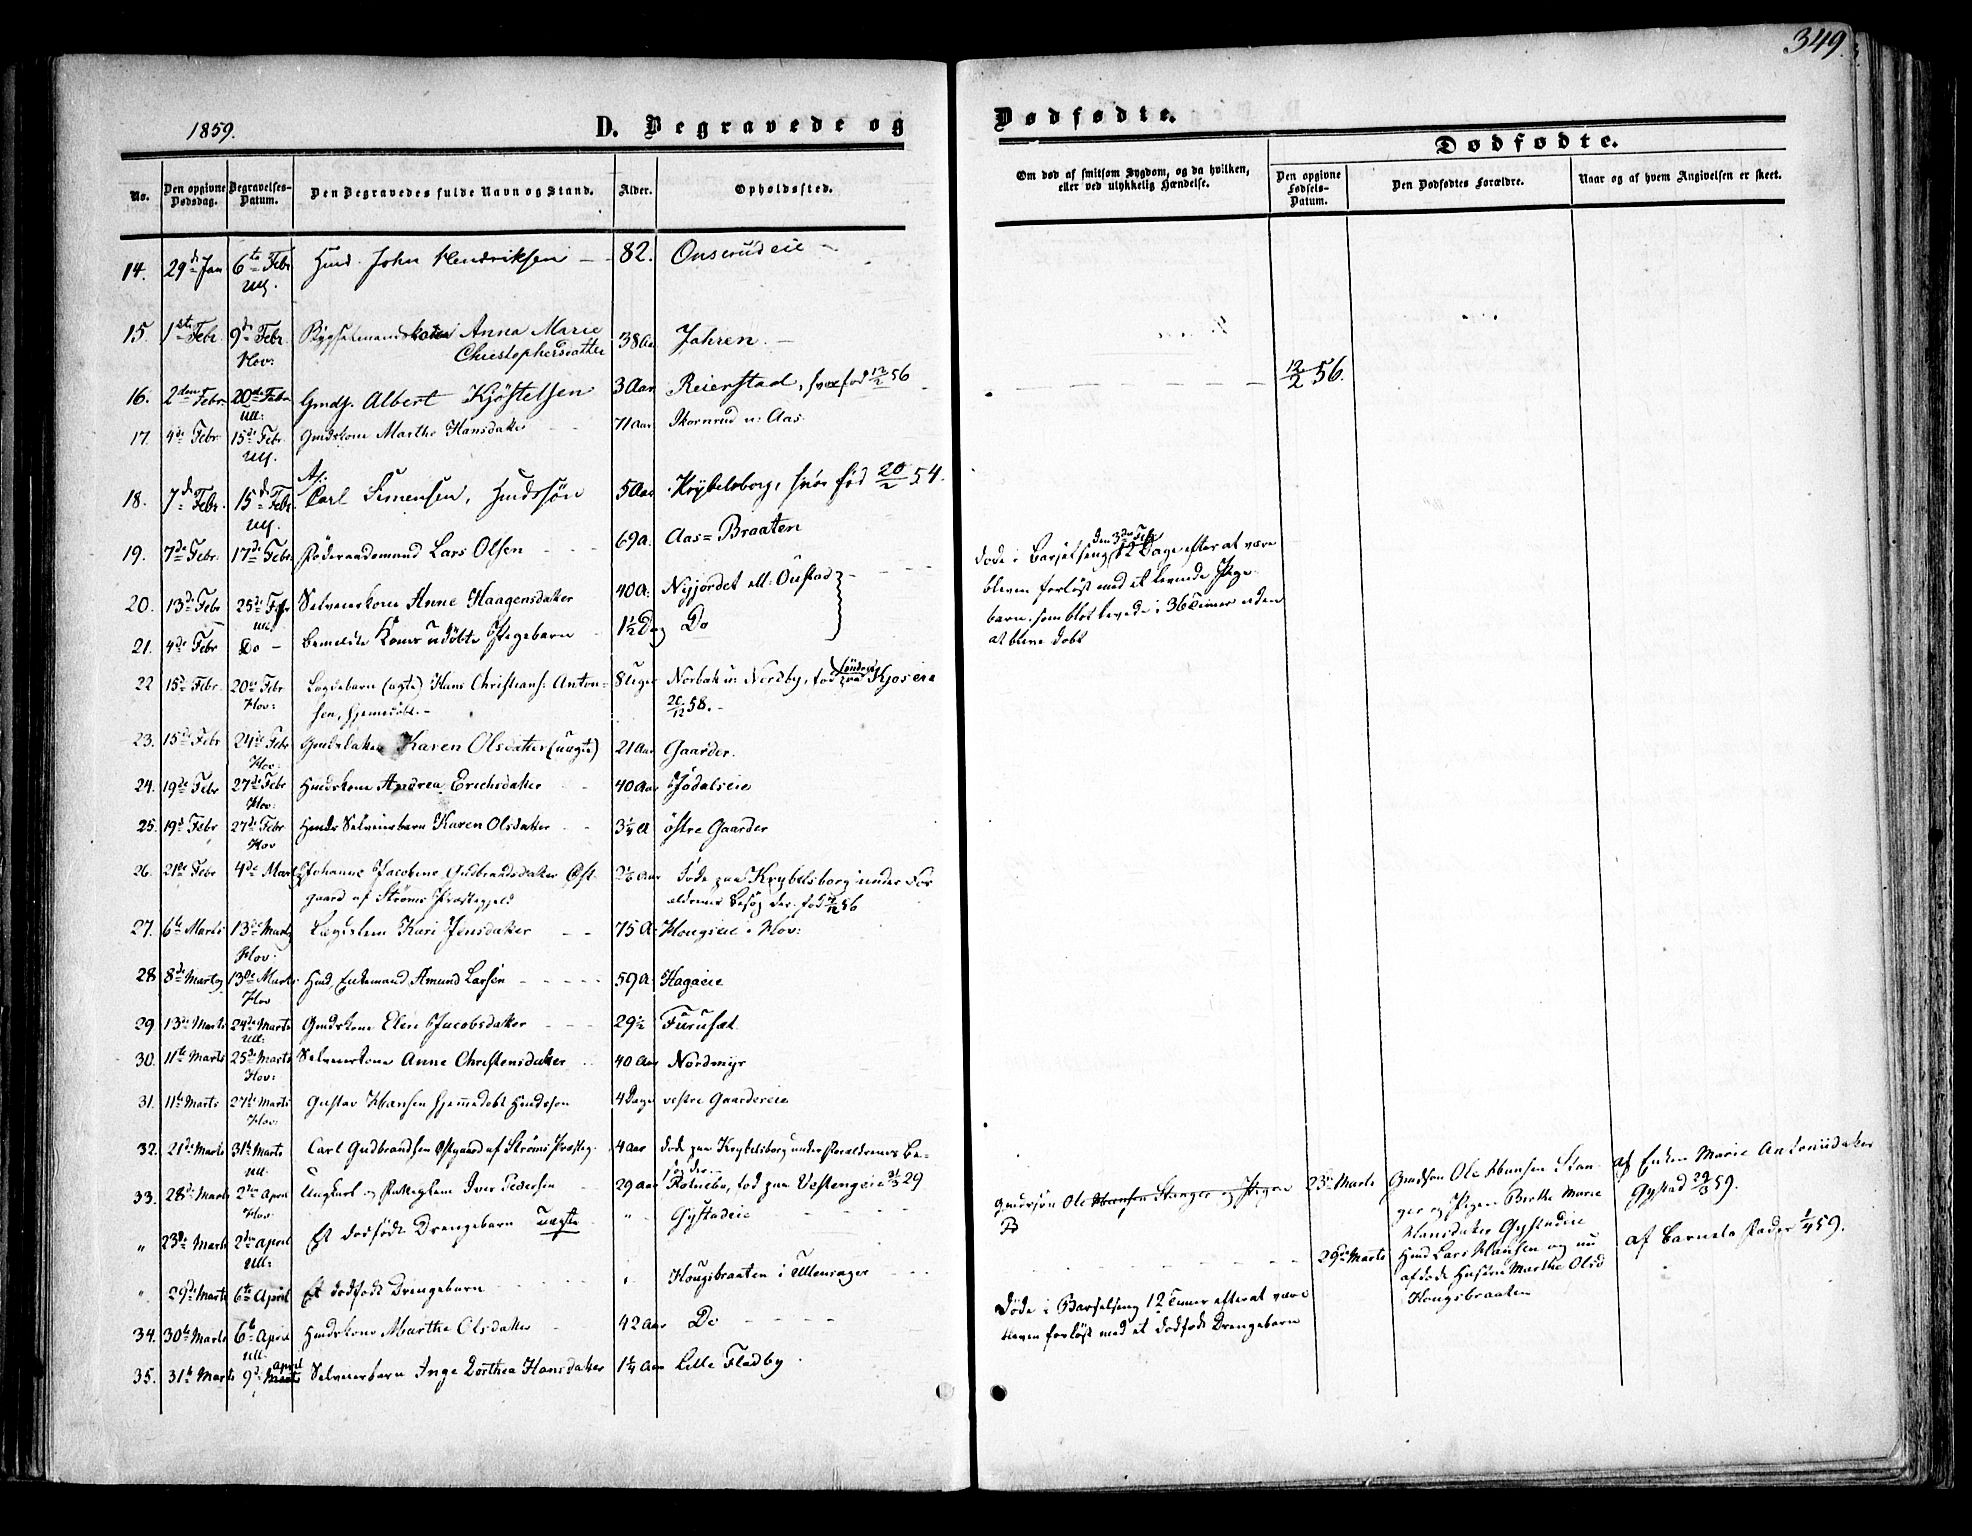 349.
1859.
D. Begravede og
Dødfødte.
Dødfødte.
No.
Den opgivne Dødsdag.
Begravelses-Datum.
Den Begravedes fulde Navn og Stand.
Alder.
Opholdssted.
Om død af smitsom Sygdom, og da hvilken,
eller ved ulykkelig Hændelse.
Den opgivne Fødsels-Datum.
Den Dødfødtes Forældre.
Naar og af hvem Angivelsen er skeet.
14. 29de Jan 6te Febr Ull. Huusmd. John Hendriksen 82. Onsrudeie
15. 1ste Febr. 9de Febr Hov: Anna Marie
Christophersdatter 38 Aar Jahren.
16. 2den Febr. 20de Febr Ull: Gmds. Albert Kjöstelsen 3 Aar Reierstad, hvor fød 12/2 56
12/2 56.
17. 4de Febr 15de Febr. Ull. Gmdskone Marthe Hansdatter 71 Aar Skornrud u: Aas
18. 7de Febr. 15de Febr. Ull. Carl Simensen, Hmdssön 5 Aar Krybelsborg, hvor fød 20/2 54.
19. 7de Febr. 17de Febr. Föderaadsmand Lars Olsen 69 a. Aas=Braaten
20. 13de Febr 25de Febr Ull. Selveierkone Anne Haagensdatter 40 A. Nyjordet ell: Onstad
21. 4de Febr Do Bemeldte Kones udöbte Pigebarn 1½ Dag Do
döde i Barselseng den 3de Febr 12 Dage efter at være
bleven forløst med et levende Pige-
barn, som blot levede i 36 Timer uden
at blive döbt
22 15de Febr 20de Febr Hov: Lægdebarn (ægte) Hans Christians: Anton-
sen, hjemmedöbt. 8 Uger Norbak u: Nordby, fød paa Kjos eie
20/12 58.
23. 15de Febr 24de Febr Hov: Gmdsdatter Karen Olsdatter (uægte) 21 Aar Gaarder.
24. 19de Febr 27de Febr Hov: Hmdskone Andrea Erichsdatter 40 Aar Jödalseie
25. 19de Febr 27de Febr Hov Selveierbarn Karen Olsdatter 3¼ A östre Gaarder
26. 21de Febr 4de Marts Johanne Jacobine Gudbrandsdatter Øst-
gaard af Ströms Præstegjeld döde paa Krybelsborg under For-
ældrenes Besøg der. fød 56
27. 6te Marts 13de Marts Hov: Lægdslem Kari Jensdatter 75 A. Hougseie i Hov:
28 8de Marts 13de Marts Hov Hmd, Enkemand Amund Larsen 59 A. Hagaeie
29 13de Marts 24de Marts Ull: Gmdskone Elen Jacobsdatter 29½ Furuset.
30. 11te Marts 25de Marts Hov: Selveierkone Anne Christensdatter 40 Aar Nordmyr
31. 11te Marts 27de Marts Hov: Gustav Hansen hjemmedöbt Hmdssøn 4 Dage vestre Gaardereie
32. 21de Marts 31te Marts Ull. Carl Gudbrandsen Østgaard af Ströms Præsteg. 4 Aar döde paa Krybelsborg under Forældrenes Be-
søg der.
33. 28de Marts 2den April Hov: Ungkarl og Iver Pedersen 29 Aar fød paa Vestengeie 29
" 23de Marts 2den April Ull: Et dødfødt Drengebarn uægte " Gystadeie
Gmdssøn Ole Hansen Stanger og Pigen
B
23de Marts Gmdssøn Ole Hansen Stan-
ger og Pigen Berthe Marie
Hansdatter Gystadeie
af Enken Marie Antonsdatter
Gystad 29/3 59.
" 29de Marts 6te April Et dødfødt Drengebarn " Hougsbraaten i Ullensager
29de Marts Hmd Lars Hansen og nu
afdøde Hustru Marthe Olsd
Hougsbraaten
af Barnets Fader 1/4 59.
34. 30te Marts 6te April Ull. Hmdskone Marthe Olsdatter 42 Aar Do
Døde i Barselseng 12 Timer efter at være
bleven forløst med et dödfødt Drengebarn
35. 31te Marts 9de Marts April Selveierbarn Inge Dorthea Hansdatter 1¼ Aar Lille Fladby.